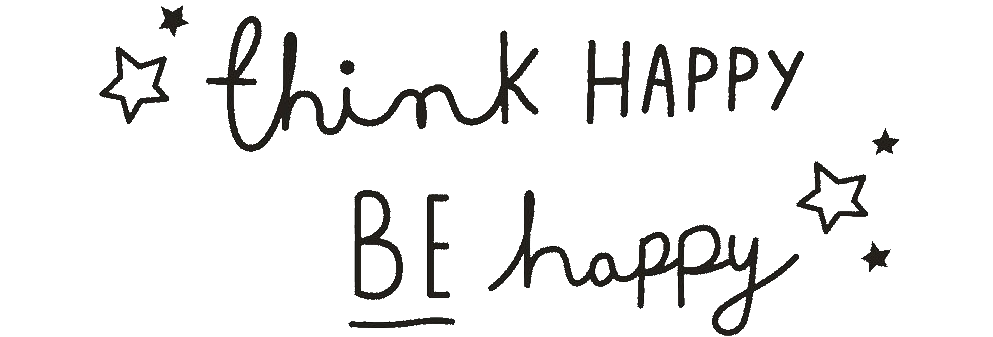 think HAPPY
BE happy